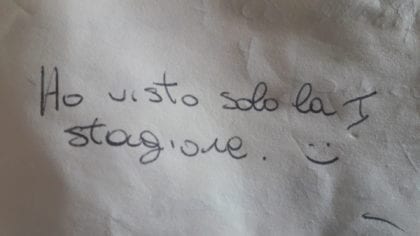 Ho visto solo la I
stagione. :)